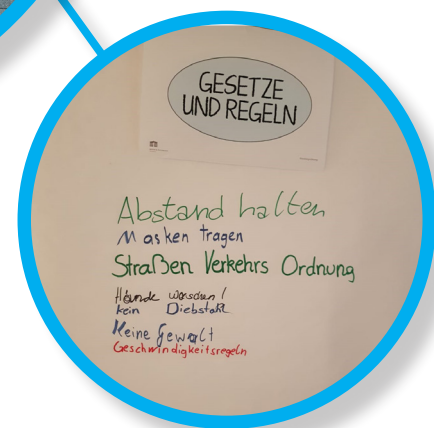 GESETZE
UND REGELN
Abstand halten
Masken tragen
Straßen Verkehrs Ordnung
Hände waschen!
kein Diebstahl
Keine Gewalt
Geschwindigkeitsregeln